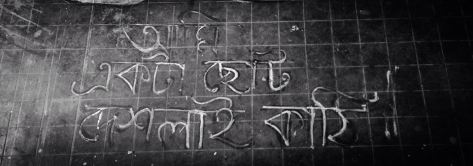 আমি
একটা ছোট্ট
দেশলাই কাঠি